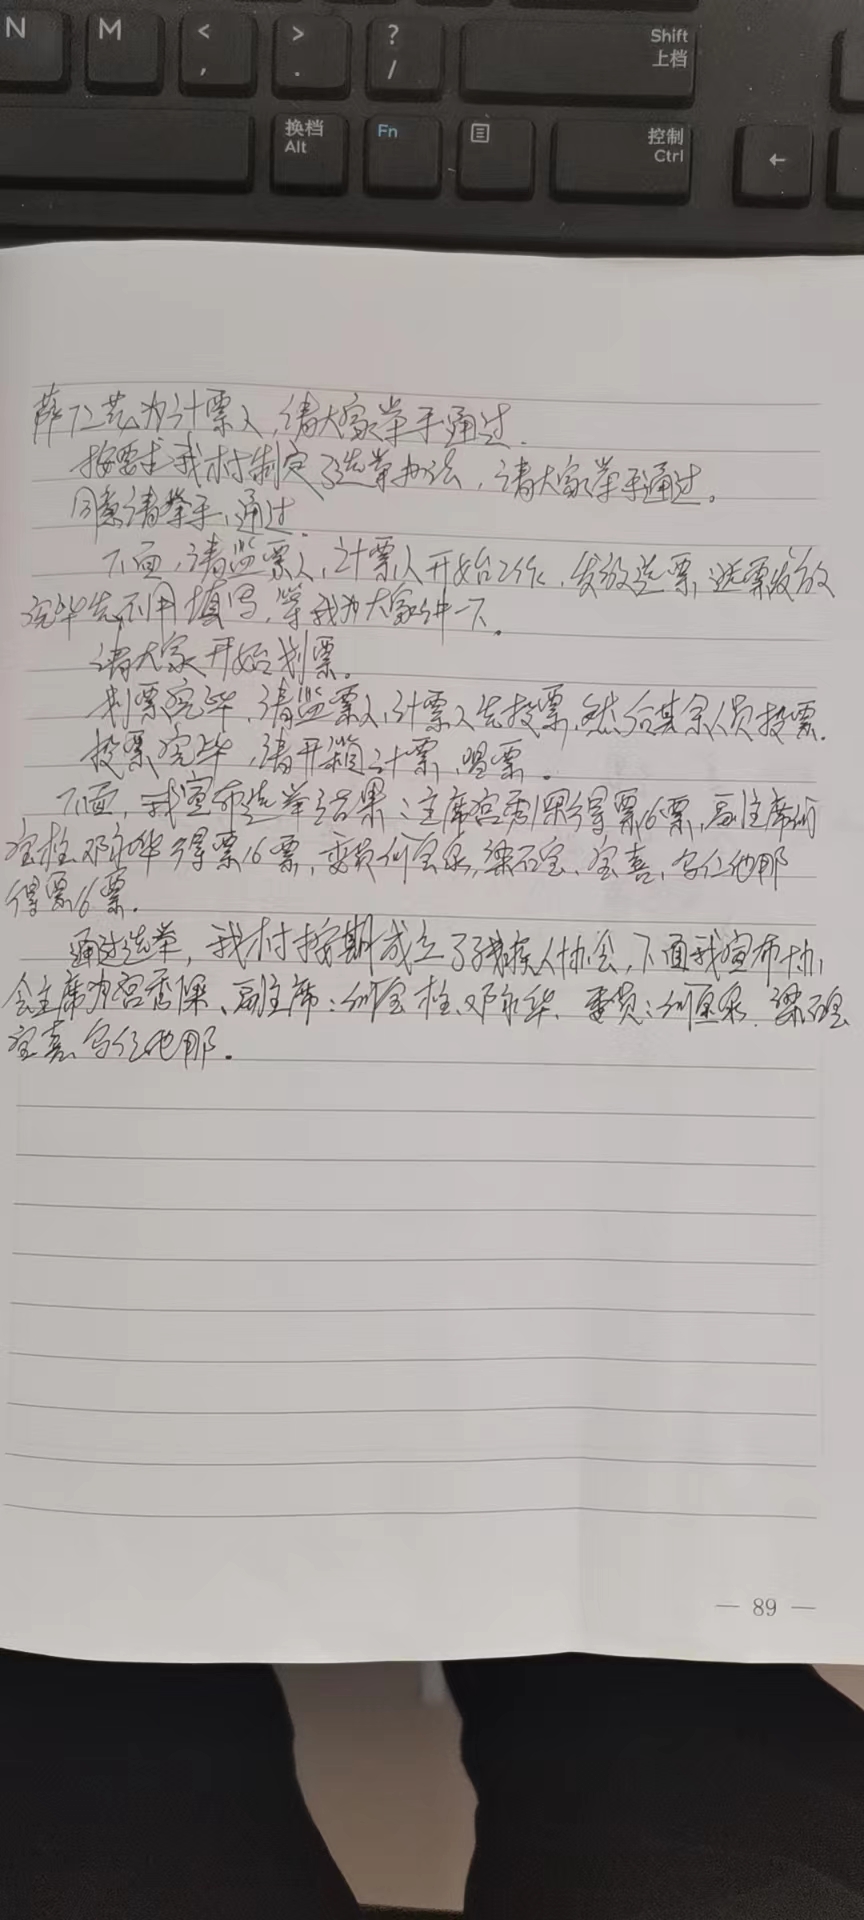 N M < , > . ? / Shift 上档
换档 Alt Fn 控制 Ctrl ←
薛仁 为计票人,请大家举手通过.
按要求我村制定了选举办法,请大家举手通过。
同意请举手,通过.
下面,请监票人,计票人开始工作,发放选票,选票发放
完毕先不用填写,等我为大家讲一下。
请大家开始划票。
划票完毕,请监票人,计票人先投票,然后其余人员投票.
投票完毕,请开箱计票,唱票。
下面,我宣布选举结果:主席宫秀 得票16票,副主席
宝柱、邓永华得票16票,委员 宝 、宝喜、 仁他那
得票16票.
通过选举,我村按期成立了残疾人协会,下面我宣布协
会主席为宫秀 、副主席: 宝柱、邓永华、委员:
宝喜、 仁他那。
— 89 —